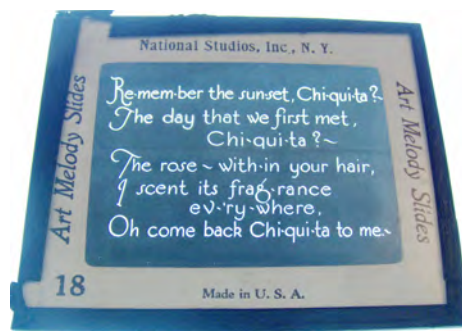 National Studios, Inc., N. Y.
Art Melody Slides
Re-mem-ber the sun-set, Chi-qui-ta?~
The day that we first met,
Chi-qui-ta?~
The rose ~ with-in your hair,
I scent its frag-rance
ev-'ry-where,
Oh come back Chi-qui-ta to me.~
Art Melody Slides
18
Made in U. S. A.